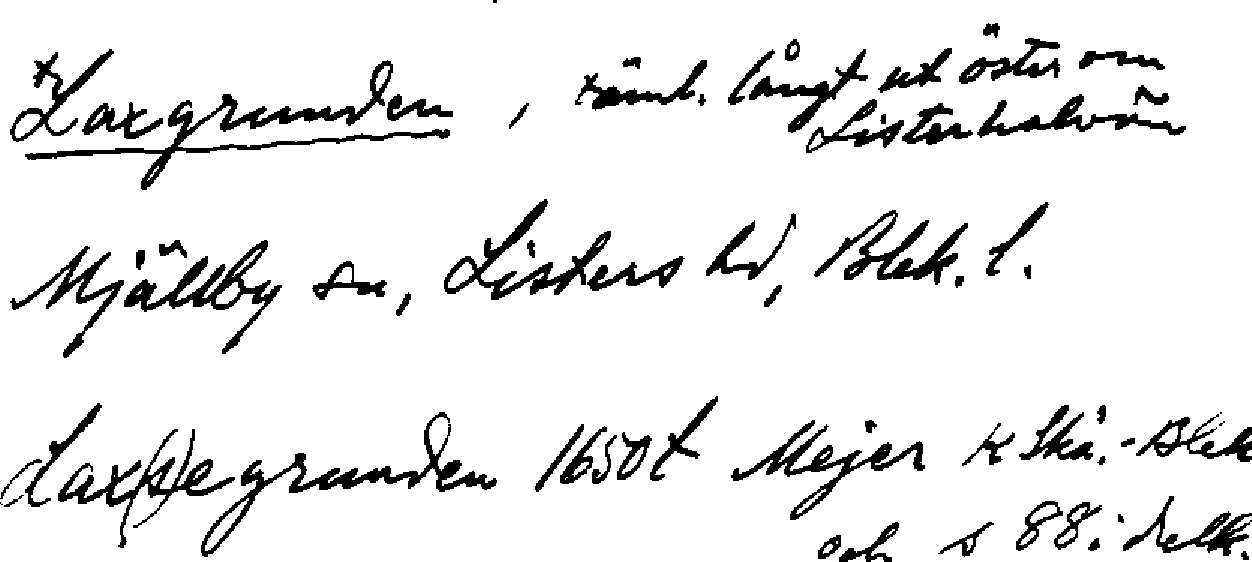 Laxgrunden, täml. långt ut öster om
Listerhalvön
Mjällby sn, Listers hd, Blek. l.
Lax(s)egrunden 1650t Mejer K Skå.-Blek
och s 88 i